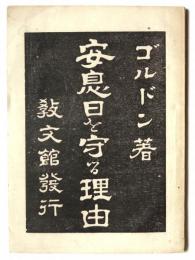 ゴルドン著
安息日を守る理由
敎文館發行